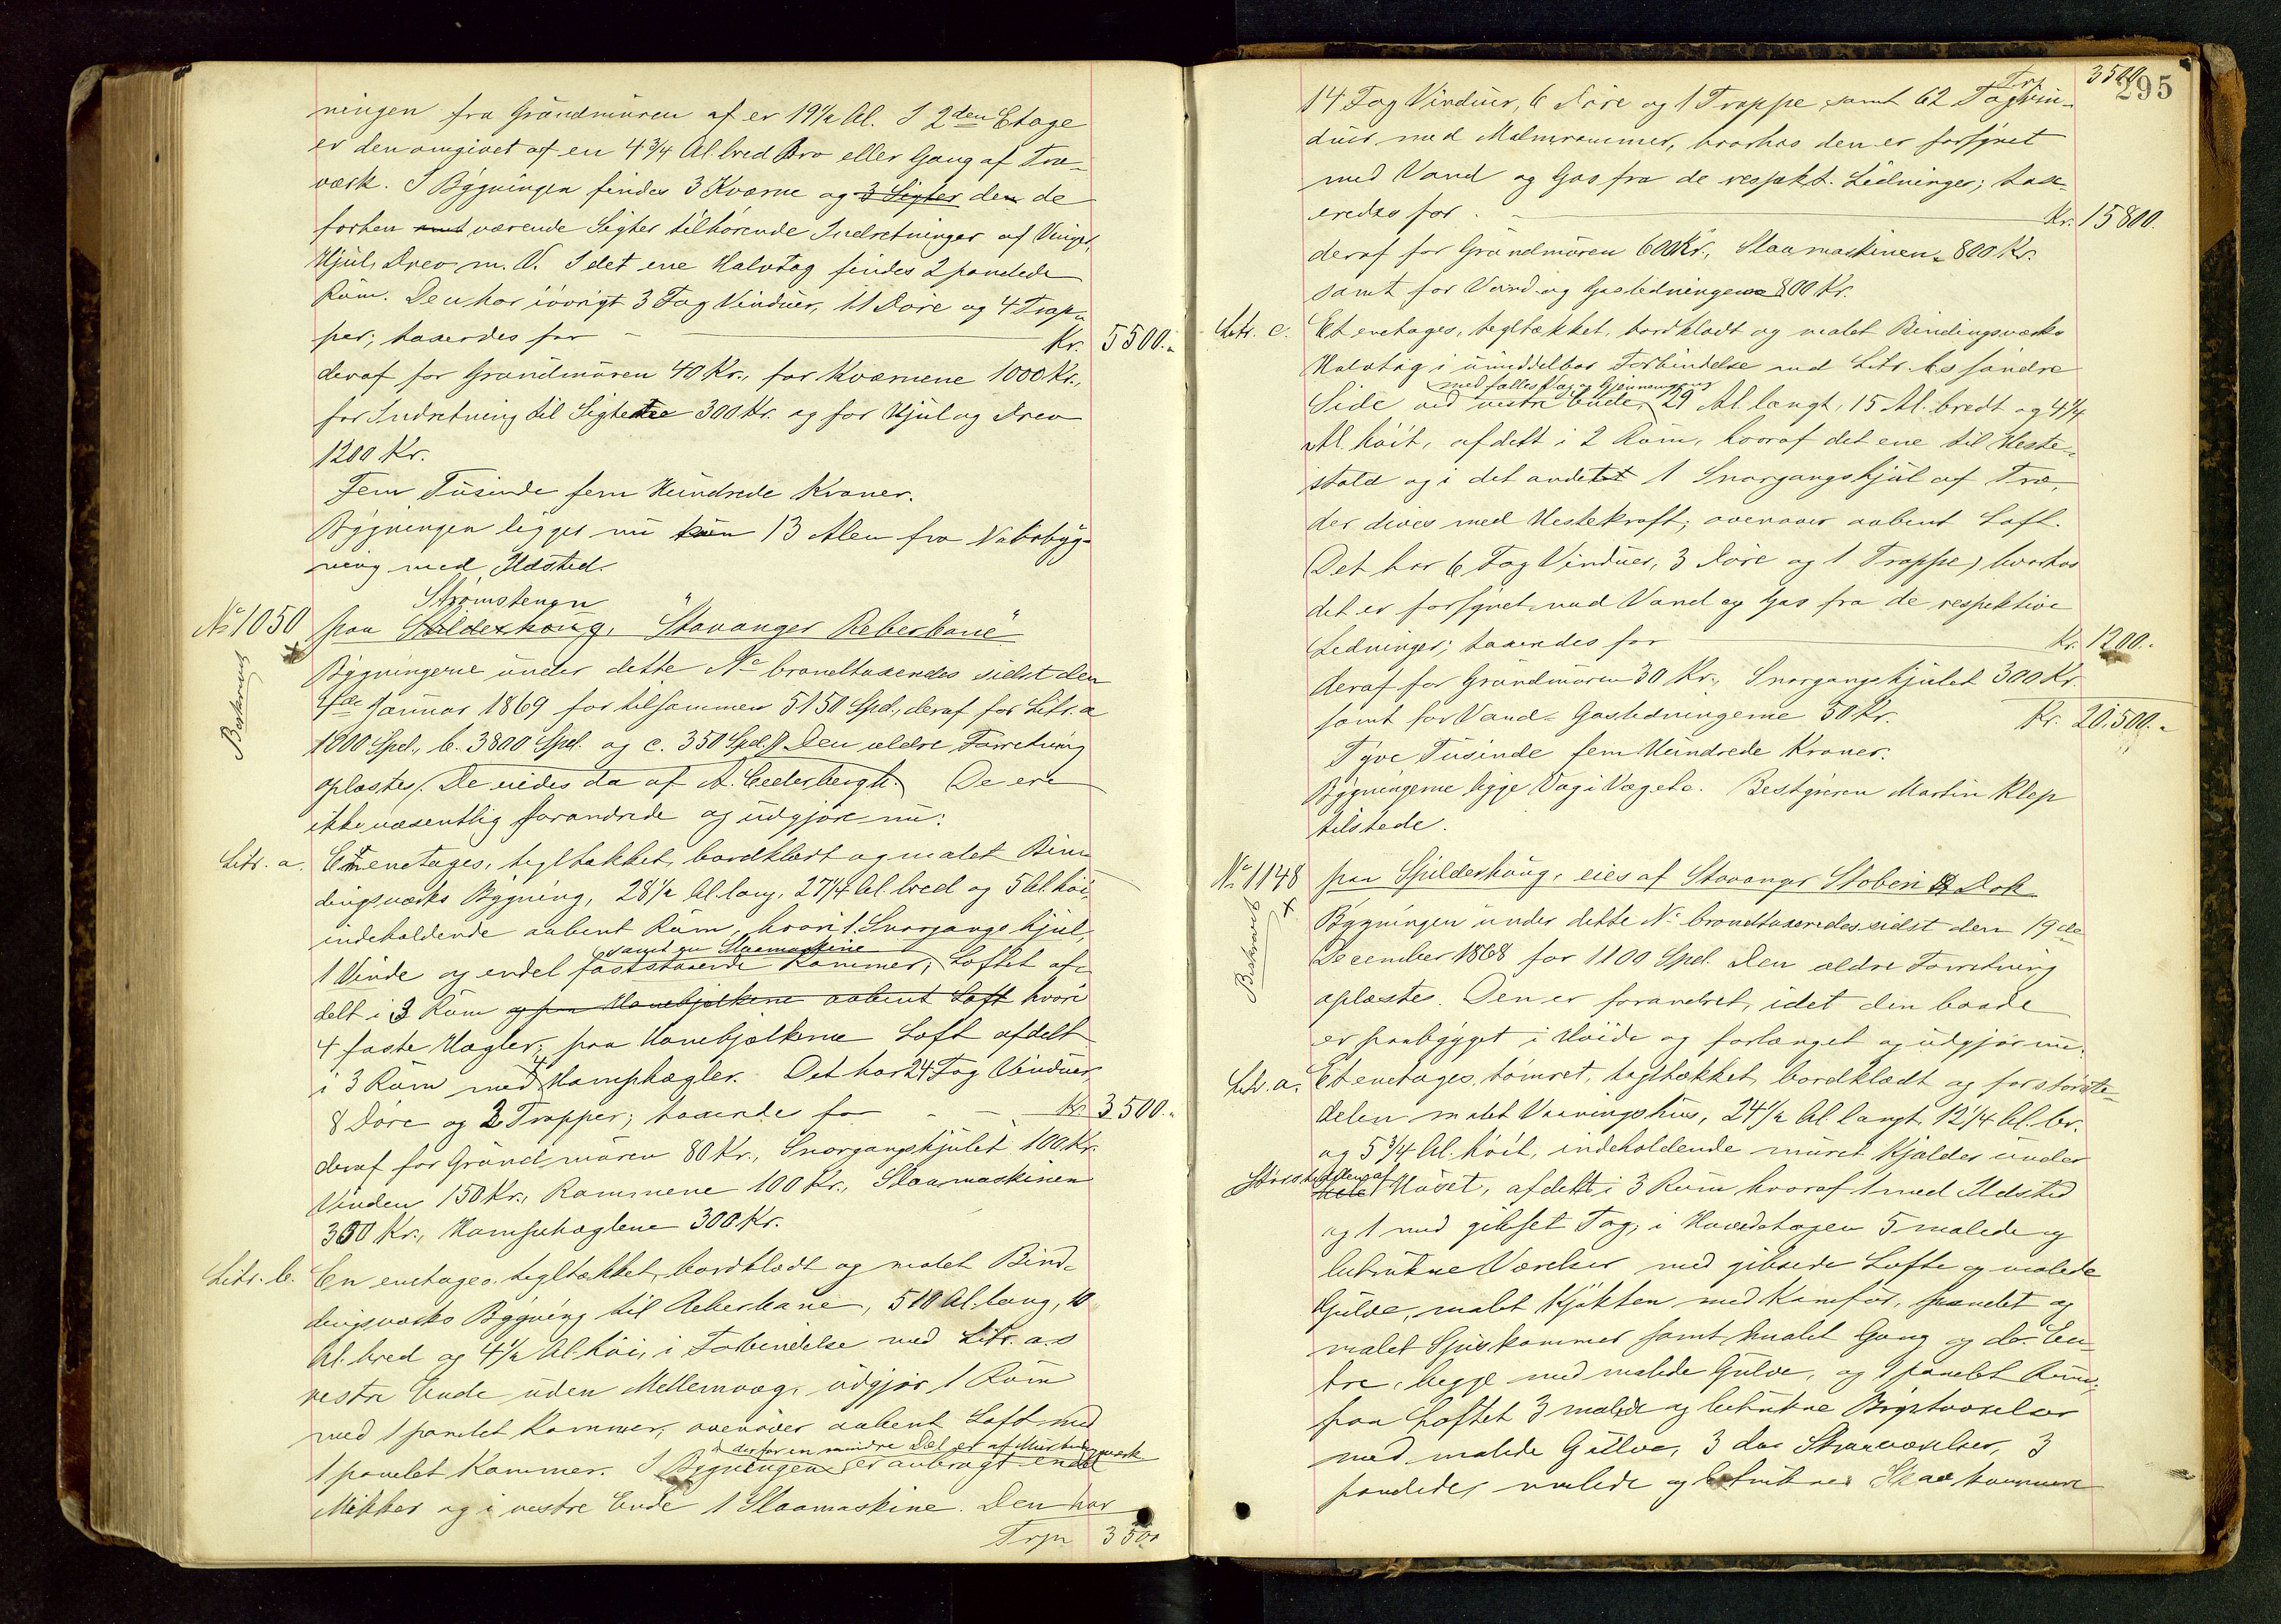 ningen fra Grundmuren af er 19½ Al. I 2den Etage
er den omgivet af en 4¾ Al. bred Bro eller Gang af Træ-
værk. I Bygningen findes 3 Kværne og 3 Sigter den de
forhen værende Sigter tilhørende Indretninger af Vinger,
Hjul, Drev m. V. I det ene Halvtag findes 2 panelede
Rum. Den har iøvrigt 3 Fag Vinduer, 11 Døre og 4 Trap-
per; taxeredes for - Kr. 5500.-
deraf for Grundmuren 40 Kr., for Kværnene 1000 Kr.,
for Indretning til Sigter 300 Kr. og for Hjul og Drev
1200 Kr.
Fem Tusinde fem Hundrede Kroner.
Bygningen ligger nu kun 13 Alen fra Nabobyg-
ning med Ildsted.
Strømstenen
No 1050 paa Spilderhaug, "Stavanger Reberbane"
Beskrevet
Bygningerne under dette No brandtaxeredes sidst den
Januar 1869 for tilsammen 5150 Spd., deraf for Litr. a
1000 Spd., b. 3800 Spd. og c. 350 Spd. Den ældre Forretning
oplæstes. De eiedes da af A. Cederbergh. De ere
ikke væsentlig forandrede og udgjøre nu:
Litr. a. Et enetages, tegltækket, bordklædt og malet Bin-
dingsværks Bygning, 28½ Al. lang, 27¼ Al. bred og 5 Al. høi,
indeholdende aabent Rum, hvori 1 Snorgangshjul,
samt en Slaamaskine
1 Vinde og endel faststaaende Rammer; Loftet af-
delt i 3 Rum og paa Hanebjælkene aabent Loft hvori
4 faste Hægler; paa Hanebjælkerne Loft afdelt
i 3 Rum med 4 Hamphægler. Det har 24 Fag Vinduer,
8 Døre og 2 Trapper; taxerede for - - Kr. 3500.-
deraf for Grundmuren 80 Kr., Snorgangshjulet 100 Kr.
Vinden 150 Kr., Rammene 100 Kr., Slaamaskinen
300 Kr., Hamphæglene 300 Kr.
Litr. b. En enetages, tegltækket, bordklædt og malet Bind-
dingsværks Bygning til Reberbane, 510 Al. lang, 10
Al. bred og 4½ Al. høi, i Forbindelse med Litr. a.s
vestre Ende uden Mellemvæg, udgjør 1 Rum
med 1 panelet Kammer, ovenover aabent Loft med
der for en mindre Del er af Murbindingsværk
1 panelet Kammer. I Bygningen er anbragt endel
Mikker og i vestre Ende 1 Slaamaskine. Den har
Trp 3500
295
Trp 3500
14 Fag Vinduer, 6 Døre og 1 Trappe samt 62 Tagvin-
duer med Malmrammer, hvorhos den er forsynet
med Vand og Gas fra de respekt. Ledninger; tax-
eredes for - Kr. 15800.
deraf for Grundmuren 600 Kr., Slaamaskinen 800 Kr.
samt for Vand og Gasledningerne 800 Kr.
Litr. c. Et enetages, tegltækket, bordklædt og malet Bindingsværks
Halvtag i umiddelbar Forbindelse med Litr. b.s søndre
med fælles Væg og Gjennemgang
Side ved vestre Ende, 29 Al. langt, 15 Al. bredt og 4¼
Al. høit, afdelt i 2 Rum, hvoraf det ene til Heste-
stald og i det andet 1 Snorgangshjul af Træ,
der drives med Hestekraft; ovenover aabent Loft.
Det har 6 Fag Vinduer, 3 Døre og 1 Trappe, hvorhos
det er forsynet med Vand og Gas fra de respektive
Ledninger; taxeredes for - Kr. 1200.-
deraf for Grundmuren 30 Kr., Snorgangshjulet 300 Kr.
samt for Vand- Gasledningerne 50 Kr. Kr. 20,500.-
Tyve Tusinde fem Hundrede Kroner.
Bygningerne ligge Væg i Væg etc. Bestyreren Martin Klep
tilstede.
No 1148 paa Spilderhaug, eies af Stavanger Støberi & Dok
Beskrevet
Bygningen under dette No brandtaxeredes sidst den 19de
December 1868 for 1100 Spd. Den ældre Forretning
oplæstes. Den er forandret, idet den baade
er paabygget i Høide og forlænget og udgjør nu:
Litr. a. Et enetages tømret, tegltækket, bordklædt og for største-
delen malet Vaaningshus, 24½ Al. langt, 12¼ Al. br.
og 5¾ Al. høit, indeholdende muret Kjælder under
Størstedelen af
hele Huset, afdelt i 3 Rum hvoraf 1 med Ildsted
og 1 med gibset Tag; i Hovedetagen 5 malede og
betrukne Værelser med gibsede Lofte og malede
Gulve, malet Kjøkken med Komfur, panelet og
malet Spiskammer samt malet Gang og do. En-
tre, begge med malede Gulve, og 1 panelet Rum;
paa Loftet 3 malede og betrukne Kvistværelser
med malede Gulve, 3 do. Skraaværelser, 3
panelede, malede og betrukne Skraakammere